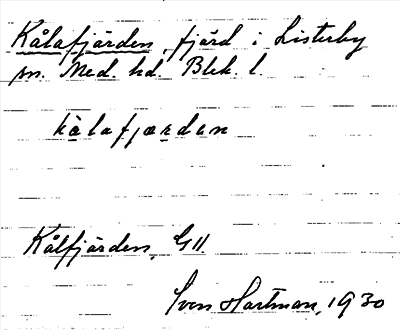 Kålafjärden, fjärd i Listerby
sn. Med. hd. Blek. l.
kålafjæṛdan
Kålfjärden, G11.
Sven Hartman, 1930